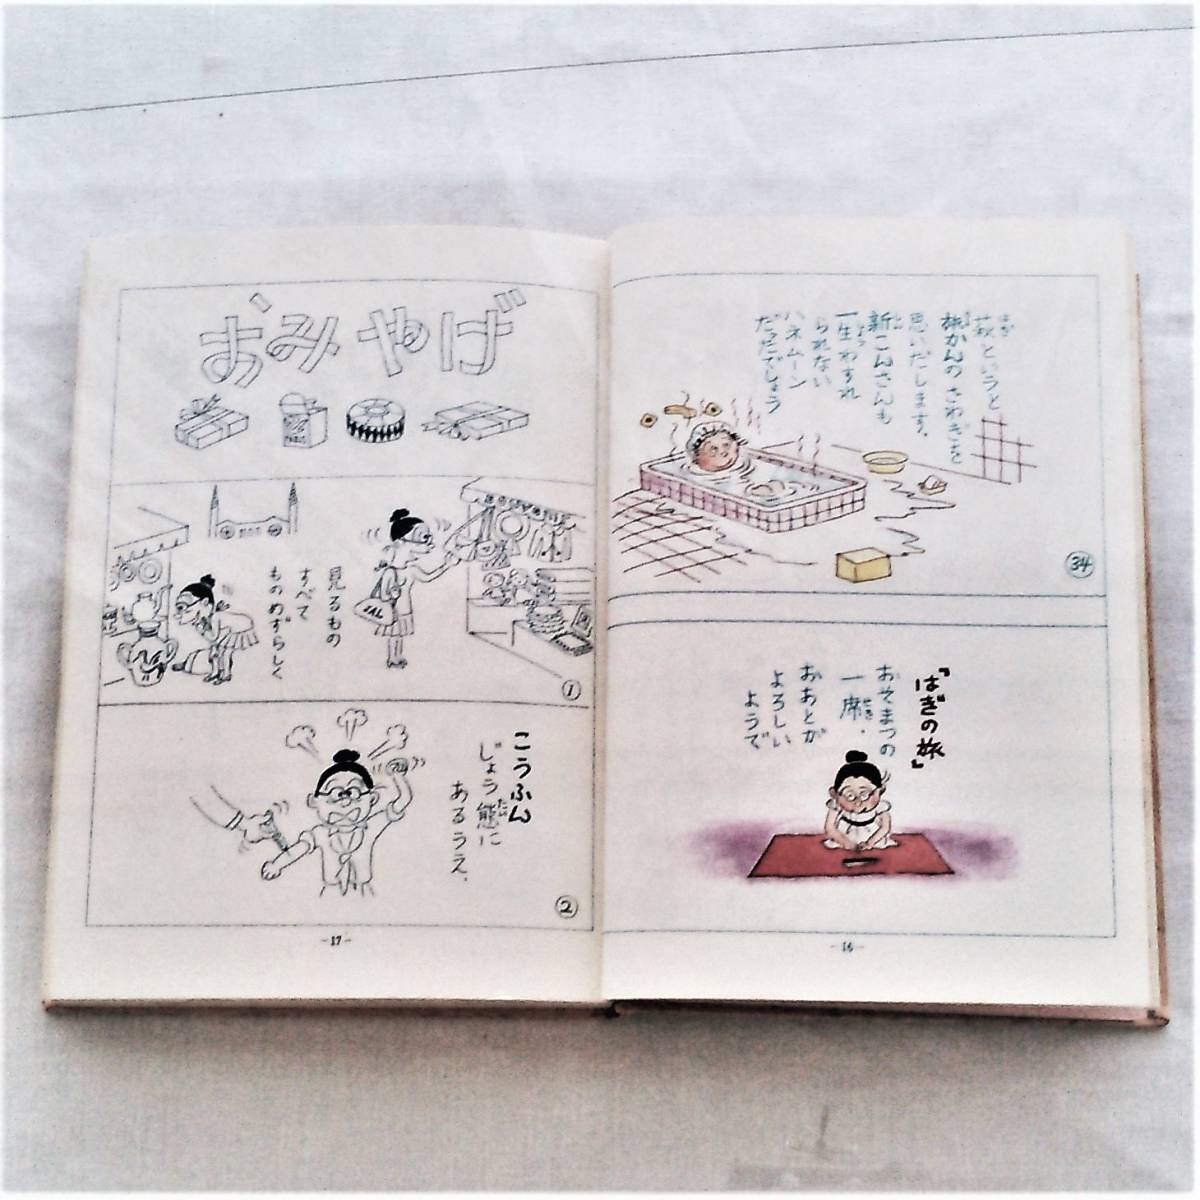 萩というと
はぎ
旅かんのさわぎを
思いだします。
新こんさんも
一生わすれ
られない
ハネムーン
だったでしょう
34
『はぎの旅』
おそまつの
一席、
せき
おあとが
よろしい
ようで
-16-
おみやげ
見るもの
すべて
ものめずらしく
JAL
1
こうふん
じょう態に
たい
あるうえ、
2
-17-